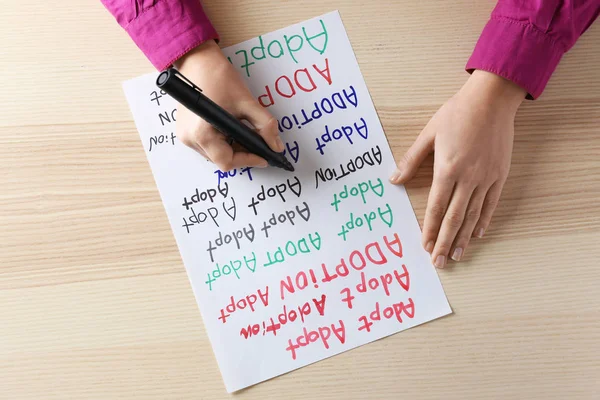 Adopt Adopt
Adopt Adoption
ADOPTION Adopt
Adopt ADOPT Adopt
Adopt Adopt Adopt
ADOPTION Adopt Adopt
Adopt Adopt
ADOPTION
ADOP
Adopt